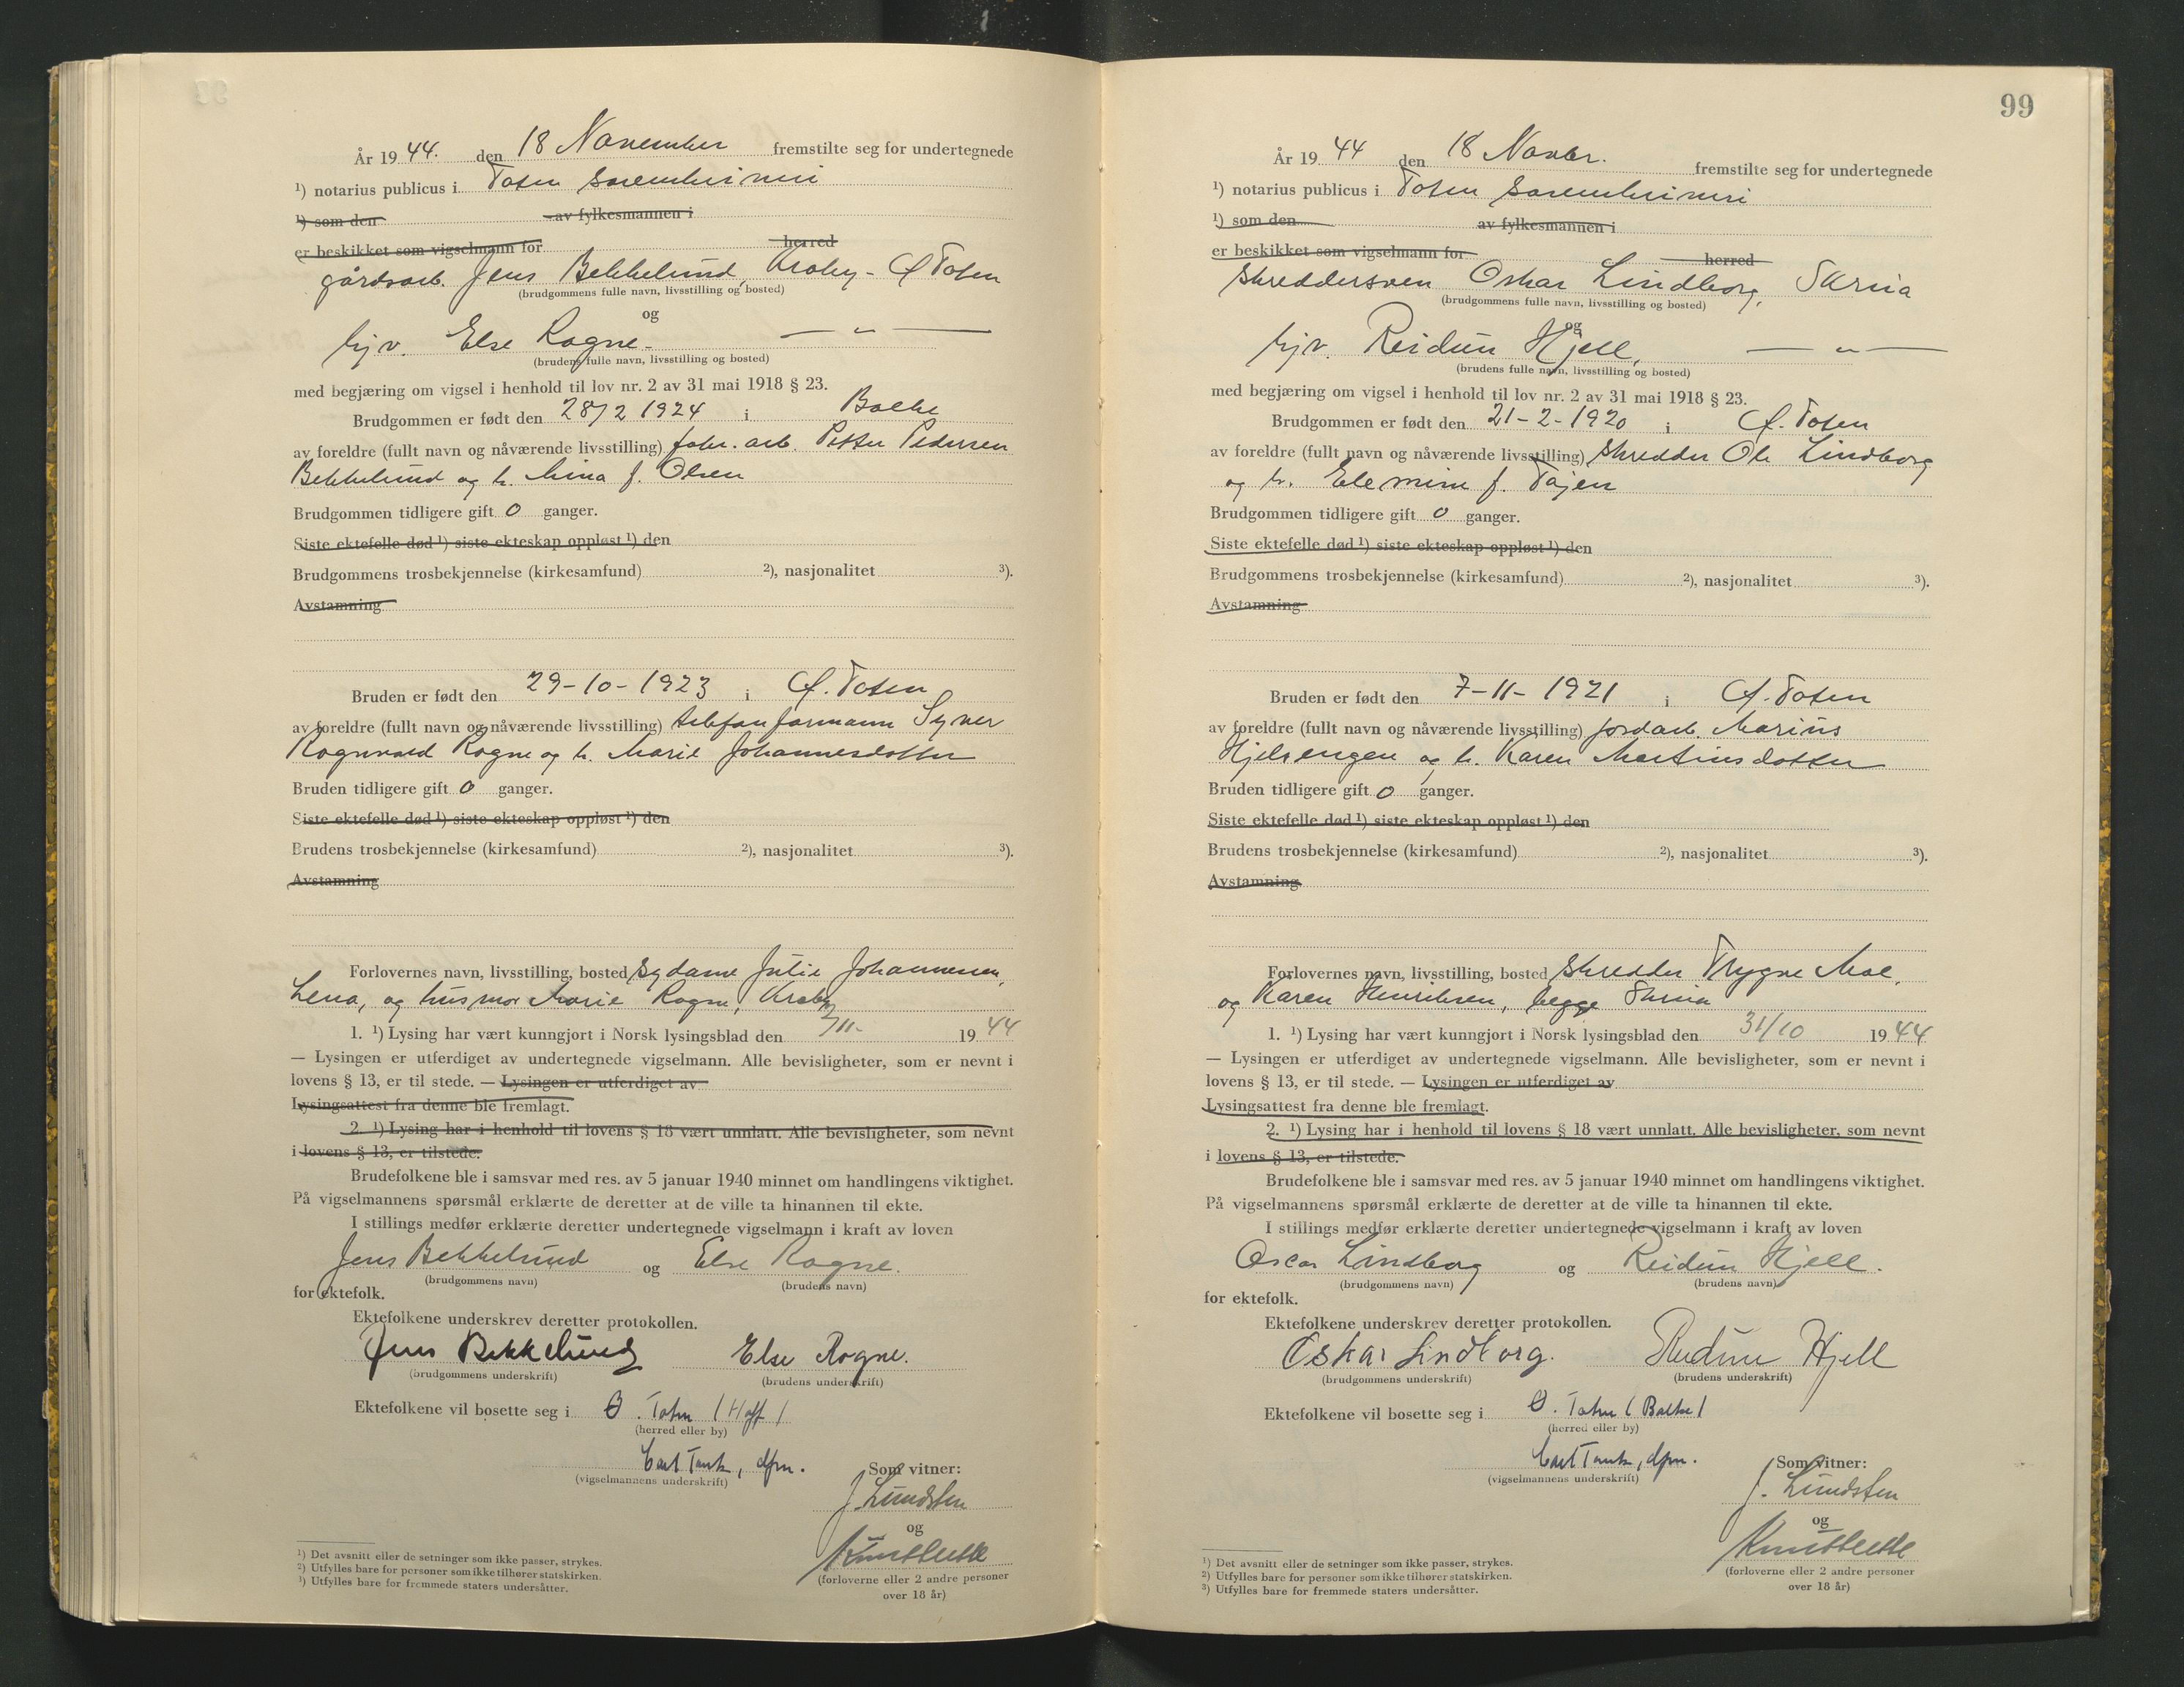 År 1944. den 18 November fremstilte seg for undertegnede
¹) notarius publicus i Toten sorenskriveri
¹) som den av fylkesmannen i
er beskikket som vigselmann for herred
gårdsarb. Jens Bekkelund, Kraby - Ø Toten
(brudgommens fulle navn, livsstilling og bosted)
og
hjv. Else Rogne - — " —
(brudens fulle navn, livsstilling og bosted)
med begjæring om vigsel i henhold til lov nr. 2 av 31 mai 1918 § 23.
Brudgommen er født den 28/2 1924 i Balke
av foreldre (fullt navn og nåværende livsstilling) fabr. arb. Petter Pedersen
Bekkelund og h. Mina f. Olsen
Brudgommen tidligere gift 0 ganger.
Siste ektefelle død ¹) siste ekteskap oppløst ¹) den
Brudgommens trosbekjennelse (kirkesamfund) ²), nasjonalitet ³).
Avstamning
Bruden er født den 29-10-1923 i Ø. Toten
av foreldre (fullt navn og nåværende livsstilling) telefonformann Syver
Rognvald Rogne og h. Marie Johannesdotter
Bruden tidligere gift 0 ganger.
Siste ektefelle død ¹) siste ekteskap oppløst ¹) den
Brudens trosbekjennelse (kirkesamfund) ²), nasjonalitet ³).
Avstamning
Forlovernes navn, livsstilling, bosted sydame Julie Johannessen,
Lena, og husmor Marie Rogne, Kraby
1. ¹) Lysing har vært kunngjort i Norsk lysingsblad den 2/11- 1944
— Lysingen er utferdiget av undertegnede vigselmann. Alle bevisligheter, som er nevnt i
lovens § 13, er til stede. — Lysingen er utferdiget av
Lysingsattest fra denne ble fremlagt.
2. ¹) Lysing har i henhold til lovens § 18 vært unnlatt. Alle bevisligheter, som nevnt
i lovens § 13, er tilstede.
Brudefolkene ble i samsvar med res. av 5 januar 1940 minnet om handlingens viktighet.
På vigselmannens spørsmål erklærte de deretter at de ville ta hinannen til ekte.
I stillings medfør erklærte deretter undertegnede vigselmann i kraft av loven
Jens Bekkelund og Else Rogne.
(brudgommens navn) (brudens navn)
for ektefolk.
Ektefolkene underskrev deretter protokollen.
Jens Bekkelund Else Rogne.
(brudgommens underskrift) (brudens underskrift)
Ektefolkene vil bosette seg i Ø. Toten (Hoff)
(herred eller by)
Carl Tank, dfm.
(vigselmannens underskrift)
Som vitner:
J. Lundsten
og
(forloverne eller 2 andre personer
over 18 år)
¹) Det avsnitt eller de setninger som ikke passer, strykes.
²) Utfylles bare for personer som ikke tilhører statskirken.
³) Utfylles bare for fremmede staters undersåtter.
99
År 1944 den 18 Novbr. fremstilte seg for undertegnede
¹) notarius publicus i Toten sorenskriveri
¹) som den av fylkesmannen i
er beskikket som vigselmann for herred
skreddersven Oskar Lindborg, Skreia
(brudgommens fulle navn, livsstilling og bosted)
og
hjv. Reidun Hjell, — " —
(brudens fulle navn, livsstilling og bosted)
med begjæring om vigsel i henhold til lov nr. 2 av 31 mai 1918 § 23.
Brudgommen er født den 21-2-1920 i Ø. Toten
av foreldre (fullt navn og nåværende livsstilling) skredder Ole Lindborg
og h. f. Tajen
Brudgommen tidligere gift 0 ganger.
Siste ektefelle død ¹) siste ekteskap oppløst ¹) den
Brudgommens trosbekjennelse (kirkesamfund) ²), nasjonalitet ³).
Avstamning
Bruden er født den 7-11-1921 i Ø. Toten
av foreldre (fullt navn og nåværende livsstilling) jordarb. Marius
Hjelsengen og h. Karen Martinsdotter
Bruden tidligere gift 0 ganger.
Siste ektefelle død ¹) siste ekteskap oppløst ¹) den
Brudens trosbekjennelse (kirkesamfund) ²), nasjonalitet ³).
Avstamning
Forlovernes navn, livsstilling, bosted skredder Trygve Moe,
og Karen Henriksen, begge Skreia
1. ¹) Lysing har vært kunngjort i Norsk lysingsblad den 31/10 1944
— Lysingen er utferdiget av undertegnede vigselmann. Alle bevisligheter, som er nevnt i
lovens § 13, er til stede. — Lysingen er utferdiget av
Lysingsattest fra denne ble fremlagt.
2. ¹) Lysing har i henhold til lovens § 18 vært unnlatt. Alle bevisligheter, som nevnt
i lovens § 13, er tilstede.
Brudefolkene ble i samsvar med res. av 5 januar 1940 minnet om handlingens viktighet.
På vigselmannens spørsmål erklærte de deretter at de ville ta hinannen til ekte.
I stillings medfør erklærte deretter undertegnede vigselmann i kraft av loven
Oscar Lindborg og Reidun Hjell.
(brudgommens navn) (brudens navn)
for ektefolk.
Ektefolkene underskrev deretter protokollen.
Oskar Lindborg. Reidun Hjell
(brudgommens underskrift) (brudens underskrift)
Ektefolkene vil bosette seg i Ø. Toten (Balke)
(herred eller by)
Carl Tank, dfm.
(vigselmannens underskrift)
Som vitner:
J. Lundsten
og
(forloverne eller 2 andre personer
over 18 år)
¹) Det avsnitt eller de setninger som ikke passer, strykes.
²) Utfylles bare for personer som ikke tilhører statskirken.
³) Utfylles bare for fremmede staters undersåtter.